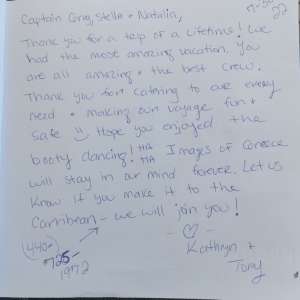 Captain Greg, Stella + Natalia,
7-30-22
Thank you for a trip of a lifetime! We
had the most amazing vacation. You
are all amazing + the best crew.
Thank you for catering to our every
need + making our voyage fun +
safe Hope you enjoyed the
booty dancing! HA HA Images of Greece
will stay in our mind forever. Let us
know if you make it to the
Carribean - we will join you!
(440-
725-
1972
Kathryn +
Tony